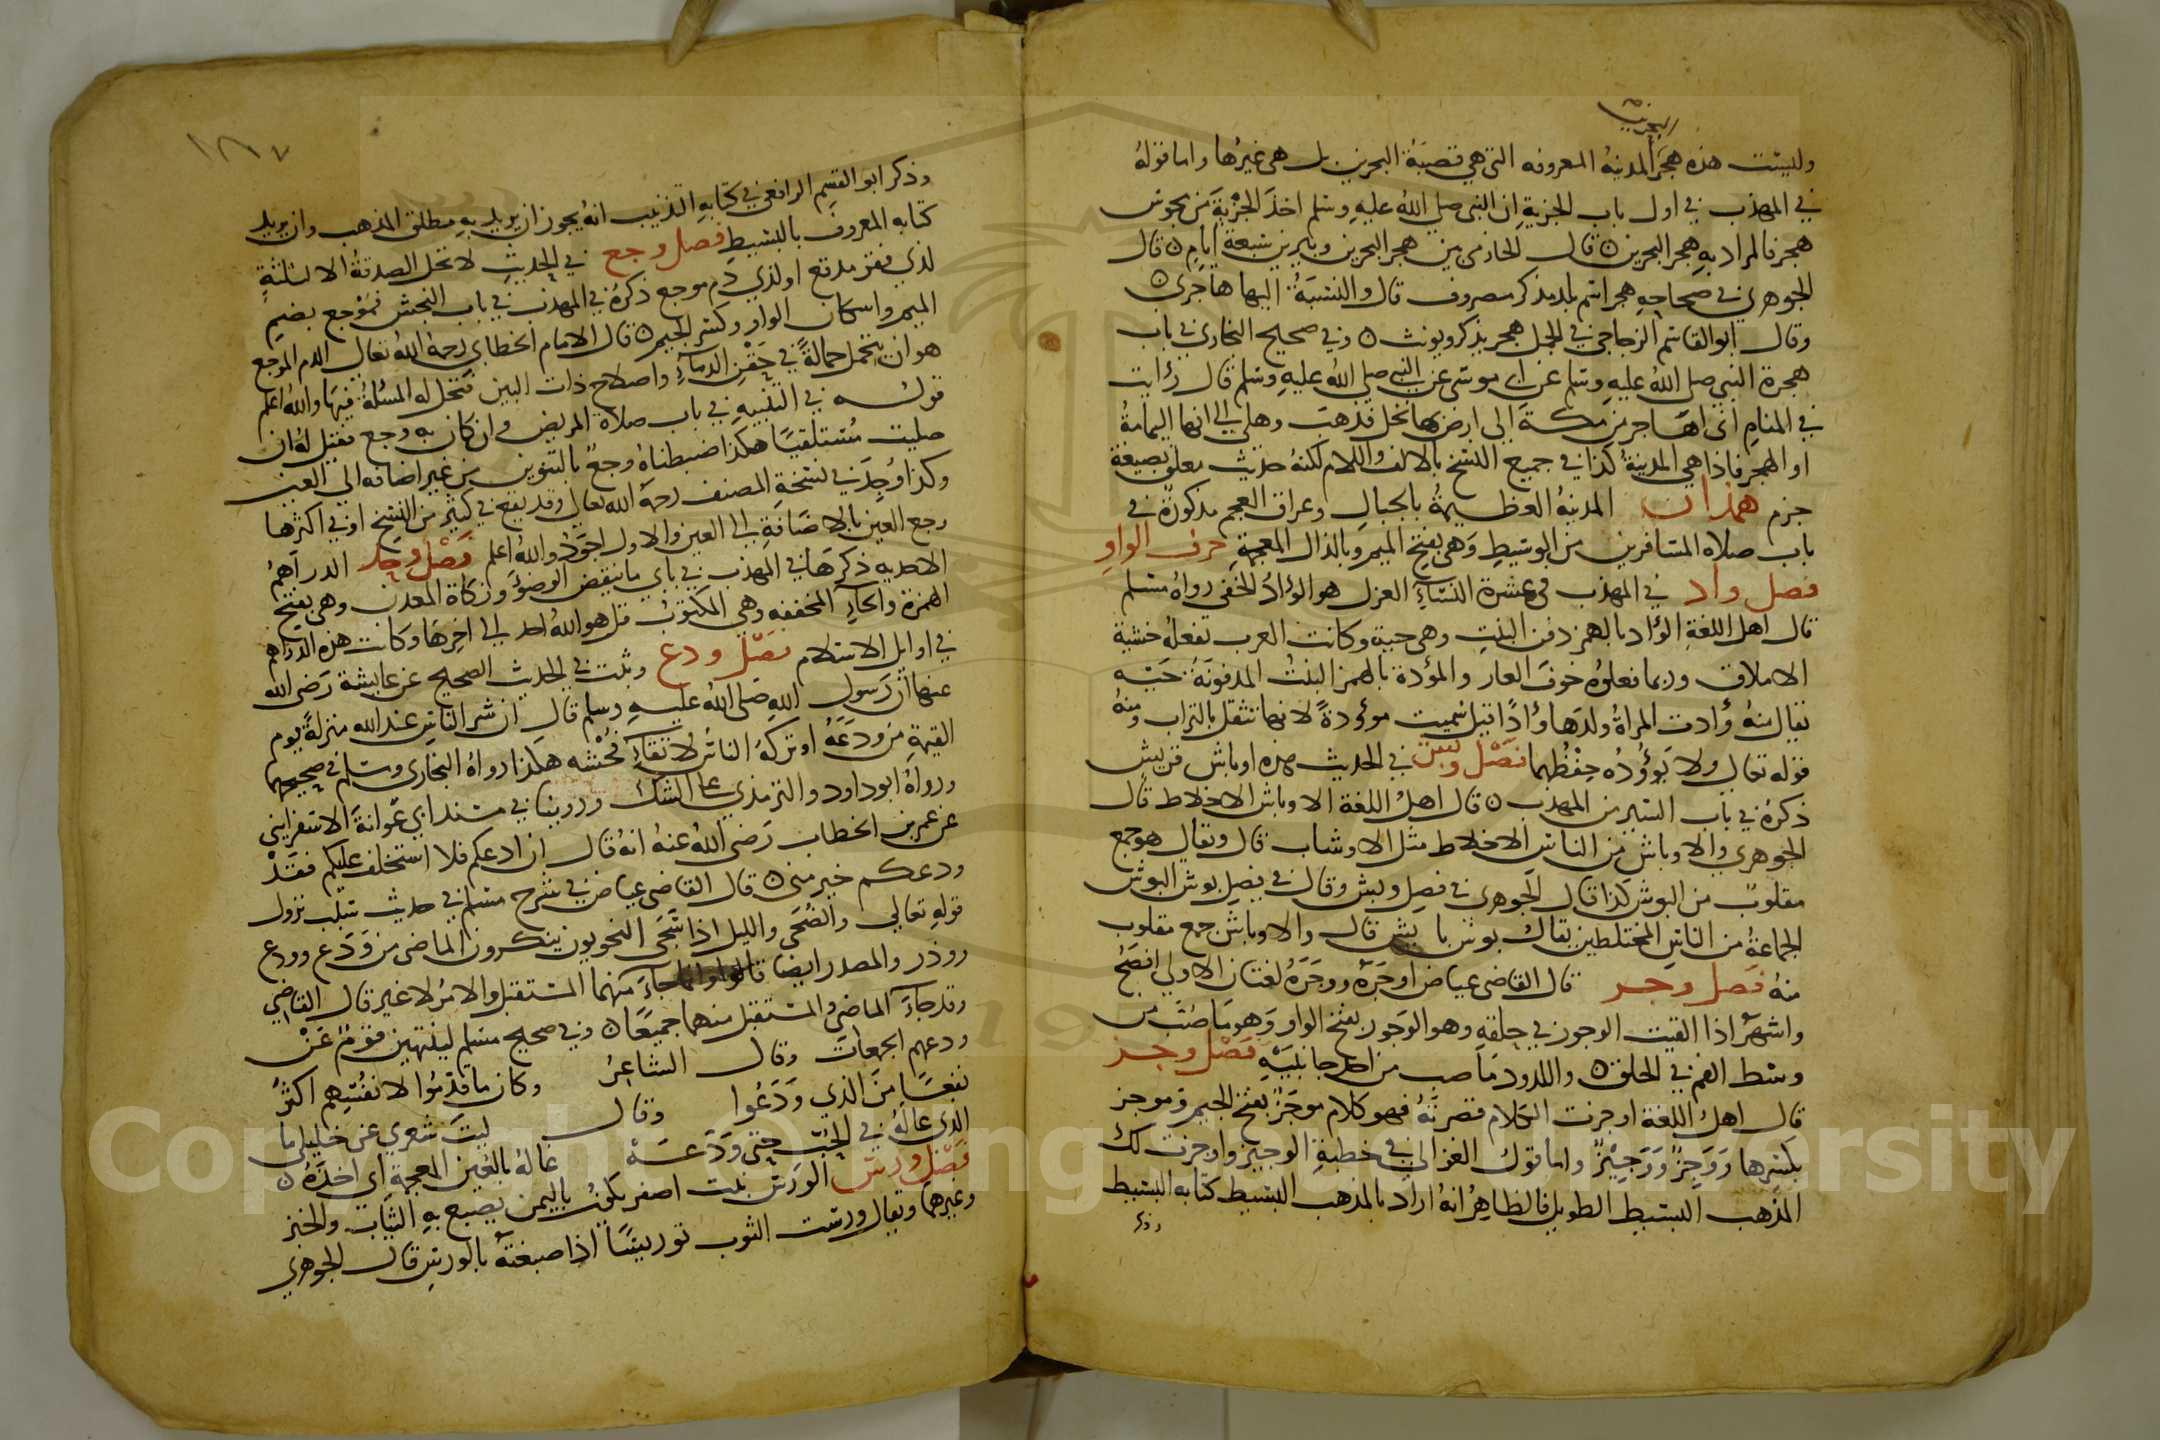 البحرين
وليست هذه هجر المدينة المعروفه التي هي قصبة البحرين بل هي غيرها واما قوله
في المهذب في اول باب الجزية ان النبي صلى الله عليه وسلم اخذ الجزية من مجوس
هجر فالمراد به هجر البحرين ٥ قال الحازمي بين هجر البحرين وبين سبعة ايام ٥ قال
الجوهري في صحاحه هجر اسم بلد مذكر مصروف قال والنسبة اليها هاجري ٥
وقال ابو القاسم الزجاجي في الجمل هجر يذكر ويونث ٥ وفي صحيح البخاري في باب
هجرة النبي صلى الله عليه وسلم عن ابي موسى عن النبي صلى الله عليه وسلم قال رايت
في المنام اني اهاجر من مكة الى ارض بها نخل فذهب وهلي الى انها اليمامة
او الهجر فاذا هي المدينة كذا في جميع النسخ بالالف واللام لكنه حديث معلق بصيغة
جزم همذان المدينة العظيمة بالجبال وعراق العجم مذكورة في
باب صلاة المسافرين من الوسيط وهي بفتح الميم وبالذال المعجمة حرف الواو
فصل واد في المهذب في عشرة النساء العزل هو الوأد الخفي رواه مسلم
قال اهل اللغة الوأد بالهمز دفن البنت وهي حية وكانت العرب تفعله خشية
الاملاق وربما فعلوه خوف العار والمؤدة بالهمز البنت المدفونة حيه
يقال منه وأدت المرأة ولدها وأدا قيل سميت موؤودة لانها تثقل بالتراب ومنه
قوله تعالى ولا يؤوده حفظهما فصل وبش في الحديث هذه اوباش قريش
ذكره في باب السير من المهذب ٥ قال اهل اللغة الاوباش الاخلاط قال
الجوهري والاوباش من الناس الاخلاط مثل الاوشاب قال ويقال هو جمع
مقلوب من البوش كذا قال الجوهري في فصل وبش وقال في فصل بوش البوش
الجماعة من الناس المختلطين يقال بوش بايش قال والاوباش جمع مقلوب
منه فصل وجر قال القاضي عياض اوجره ووجره لغتان الاولى افصح
واشهر اذا القيت الوجور في حلقه وهو الوجور بفتح الواو وهو ما صب من
وسط الفم في الحلق ٥ واللدود ما صب من احد جانبيه فصل وجز
قال اهل اللغة اوجزت الكلام قصرته فهو كلام موجز بفتح الجيم وموجز
بكسرها ووجز ووجيز واما قول الغزالي في خطبة الوجيز واوجزت لك
المذهب البسيط الطويل فالظاهر انه اراد بالمذهب البسيط كتابه البسيط
وذكر
١٨٧
وذكر ابو القسم الرافعي في كتابه التذنيب انه يجوز ان يريد به مطلق المذهب وان يريد
كتابه المعروف بالبسيط فصل وجع في الحديث لا تحل الصدقة الا لثلثة
لذي فقر مدقع او لذي دم موجع ذكره في المهذب في باب النجش فموجع بضم
الميم واسكان الواو وكسر الجيم ٥ قال الامام الخطابي رحمه الله تعالى الدم الموجع
هو ان يتحمل حمالة في حقن الدماء واصلاح ذات البين فتحل له المسئلة فيها والله اعلم
قوله في التنبيه في باب صلاة المريض وان كان به وجع فقيل له ان
صليت مستلقيا هكذا ضبطناه وجع بالتنوين من غير اضافه الى العين
وكذا وجد في نسخة المصنف رحمه الله تعالى وقد يقع في كثير من النسخ او في اكثرها
وجع العين بالاضافة الى العين والاول اجود والله اعلم فصل وحد الدراهم
الاحديه ذكرها في المهذب في باب ما ينقض الوضؤ وزكاة المعدن وهي بفتح
الهمزة والحاء المخففه وهي المكتوب قل هو الله احد الى اخرها وكانت هذه الدراهم
في اوايل الاسلام فصل ودع وثبت في الحديث الصحيح عن عايشة رضي الله
عنها ان رسول الله صلى الله عليه وسلم قال ان شر الناس عند الله منزلة يوم
القيمة من ودعه او تركه الناس لاتقاء فحشه هكذا رواه البخاري ومسلم في صحيحهما
ورواه ابو داود والترمذي على الشك وروينا في مسند ابي عوانة الاسفرايني
عن عمر بن الخطاب رضي الله عنه انه قال ان ادعكم فلا استخلف عليكم فقد
ودعكم خير مني ٥ قال القاضي عياض في شرح مسلم في حديث سبب نزول
قوله تعالى والضحى والليل اذا سجى النحويون ينكرون الماضي من ودع وودع
ووذر والمصدر ايضا قالوا وانما جاء منهما المستقبل والامر لا غير قال القاضي
وقد جاء الماضي والمستقبل منهما جميعا ٥ وفي صحيح مسلم لينتهين قوم عن
ودعهم الجمعات وقال الشاعر وكان ما قدموا لانفسهم اكثر
نفعا من الذي ودعوا وقال ليت شعري عن خليلي ما
الذي غاله في الحب حتى ودعه غاله بالغين المعجمة اي اخذه ٥
فصل ورس الورس نبت اصفر يكون باليمن يصبغ به الثياب والخبز
وغيرهما ويقال ورست الثوب توريسا اذا صبغته بالورس قال الجوهري
Copyright © King Saud University
1957